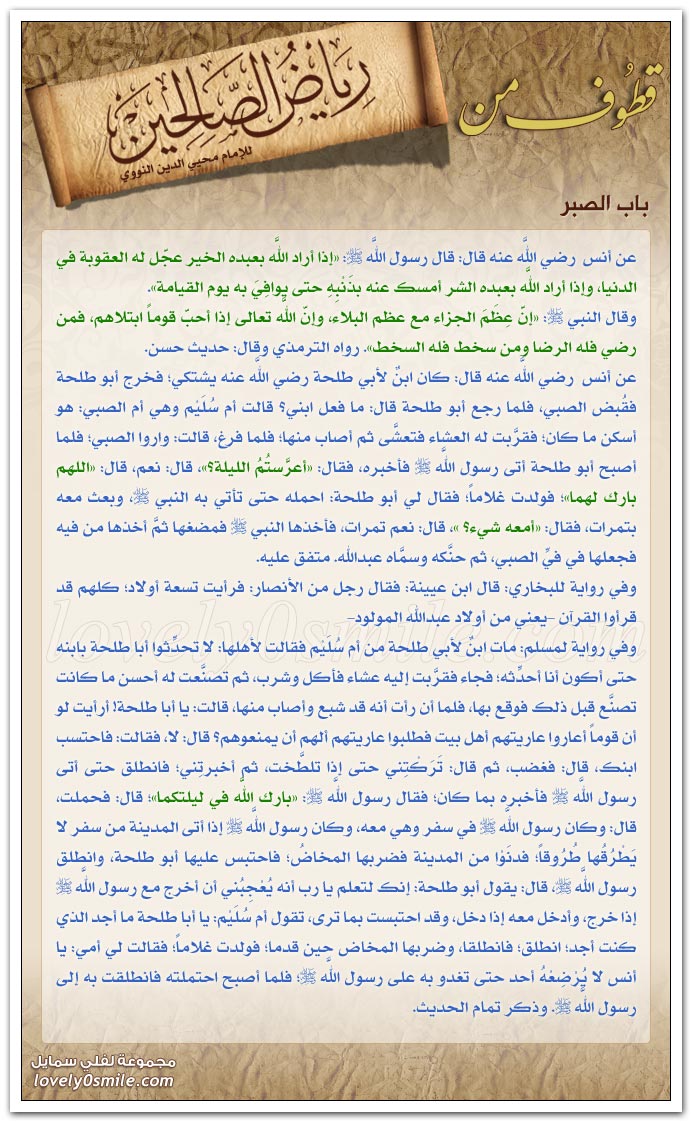 قطوف من
رياض الصالحين
للإمام محيي الدين النووي
باب الصبر
عن أنس رضي اللَّه عنه قال: قال رسول اللَّه ﷺ: «إذا أراد اللَّه بعبده الخير عجّل له العقوبة في
الدنيا، وإذا أراد اللَّه بعبده الشر أمسك عنه بذَنْبِهِ حتى يوافِيَ به يوم القيامة».
وقال النبي ﷺ: «إنّ عِظَمَ الجزاء مع عظم البلاء، وإنّ اللَّه تعالى إذا أحبّ قوماً ابتلاهم، فمن
رضي فله الرضا ومن سخط فله السخط». رواه الترمذي وقال: حديث حسن.
عن أنس رضي اللَّه عنه قال: كان ابنٌ لأبي طلحة رضي اللَّه عنه يشتكي؛ فخرج أبو طلحة
فقُبض الصبي، فلما رجع أبو طلحة قال: ما فعل ابني؟ قالت أم سُلَيْم وهي أم الصبي: هو
أسكن ما كان؛ فقرَّبت له العشاء فتعشَّى ثم أصاب منها؛ فلما فرغ، قالت: واروا الصبي؛ فلما
أصبح أبو طلحة أتى رسول اللَّه ﷺ فأخبره، فقال: «أعرَّستُمُ الليلة؟»، قال: نعم، قال: «اللهم
بارك لهما»؛ فولدت غلاماً؛ فقال لي أبو طلحة: احمله حتى تأتي به النبي ﷺ، وبعث معه
بتمرات، فقال: «أمعه شيء؟ »، قال: نعم تمرات، فأخذها النبي ﷺ فمضغها ثمَّ أخذها من فيه
فجعلها في فيِّ الصبي، ثم حنَّكه وسمَّاه عبداللَّه. متفق عليه.
وفي رواية للبخاري: قال ابن عيينة: فقال رجل من الأنصار: فرأيت تسعة أولاد؛ كلهم قد
قرأوا القرآن -يعني من أولاد عبداللَّه المولود-
وفي رواية لمسلم: مات ابنٌ لأبي طلحة من أم سُلَيْم فقالت لأهلها: لا تحدِّثوا أبا طلحة بابنه
حتى أكون أنا أحدِّثه؛ فجاء فقرَّبت إليه عشاء فأكل وشرب، ثم تصنَّعت له أحسن ما كانت
تصنَّع قبل ذلك فوقع بها، فلما أن رأت أنه قد شبع وأصاب منها، قالت: يا أبا طلحة! أرأيت لو
أن قوماً أعاروا عاريتهم أهل بيت فطلبوا عاريتهم ألهم أن يمنعوهم؟ قال: لا، فقالت: فاحتسب
ابنك، قال: فغضب، ثم قال: تَرَكْتِني حتى إذا تلطَّخت، ثم أخبرتِني؛ فانطلق حتى أتى
رسول اللَّه ﷺ فأخبره بما كان؛ فقال رسول اللَّه ﷺ: «بارك اللَّه في ليلتكما»؛ قال: فحملت،
قال: وكان رسول اللَّه ﷺ في سفر وهي معه، وكان رسول اللَّه ﷺ إذا أتى المدينة من سفر لا
يَطْرُقُها طُرُوقاً؛ فدنَوْا من المدينة فضربها المخاضُ؛ فاحتبس عليها أبو طلحة، وانطلق
رسول اللَّه ﷺ، قال: يقول أبو طلحة: إنك لتعلم يا رب أنه يُعْجِبُني أن أخرج مع رسول اللَّه ﷺ
إذا خرج، وأدخل معه إذا دخل، وقد احتبست بما ترى، تقول أم سُلَيْم: يا أبا طلحة ما أجد الذي
كنت أجد؛ انطلق؛ فانطلقا، وضربها المخاض حين قدما؛ فولدت غلاماً؛ فقالت لي أمي: يا
أنس لا يُرْضِعْهُ أحد حتى تغدو به على رسول اللَّه ﷺ؛ فلما أصبح احتملته فانطلقت به إلى
رسول اللَّه ﷺ. وذكر تمام الحديث.
lovely0smile.com
مجموعة لفلي سمايل
lovely0smile.com